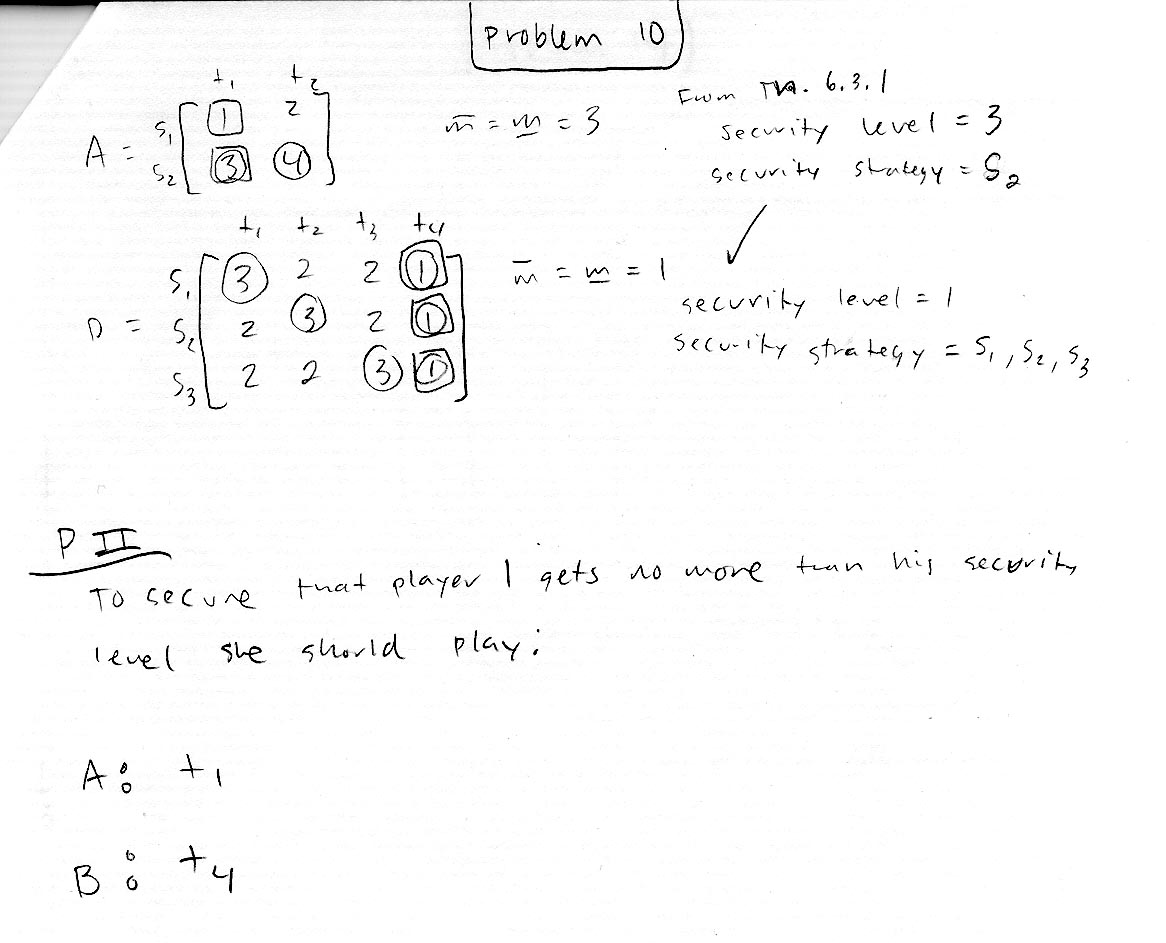 Problem 10
t1 t2
A = s1 [ 1 2
s2 3 4 ]
m̄ = m̲ = 3
From Th. 6.3.1
security level = 3
security strategy = S2
✓
t1 t2 t3 t4
D = s1 [ 3 2 2 1
s2 2 3 2 1
s3 2 2 3 1 ]
m̄ = m̲ = 1
security level = 1
security strategy = s1, s2, s3
P II
To secure that player 1 gets no more than his security
level she should play:
A: t1
B: t4